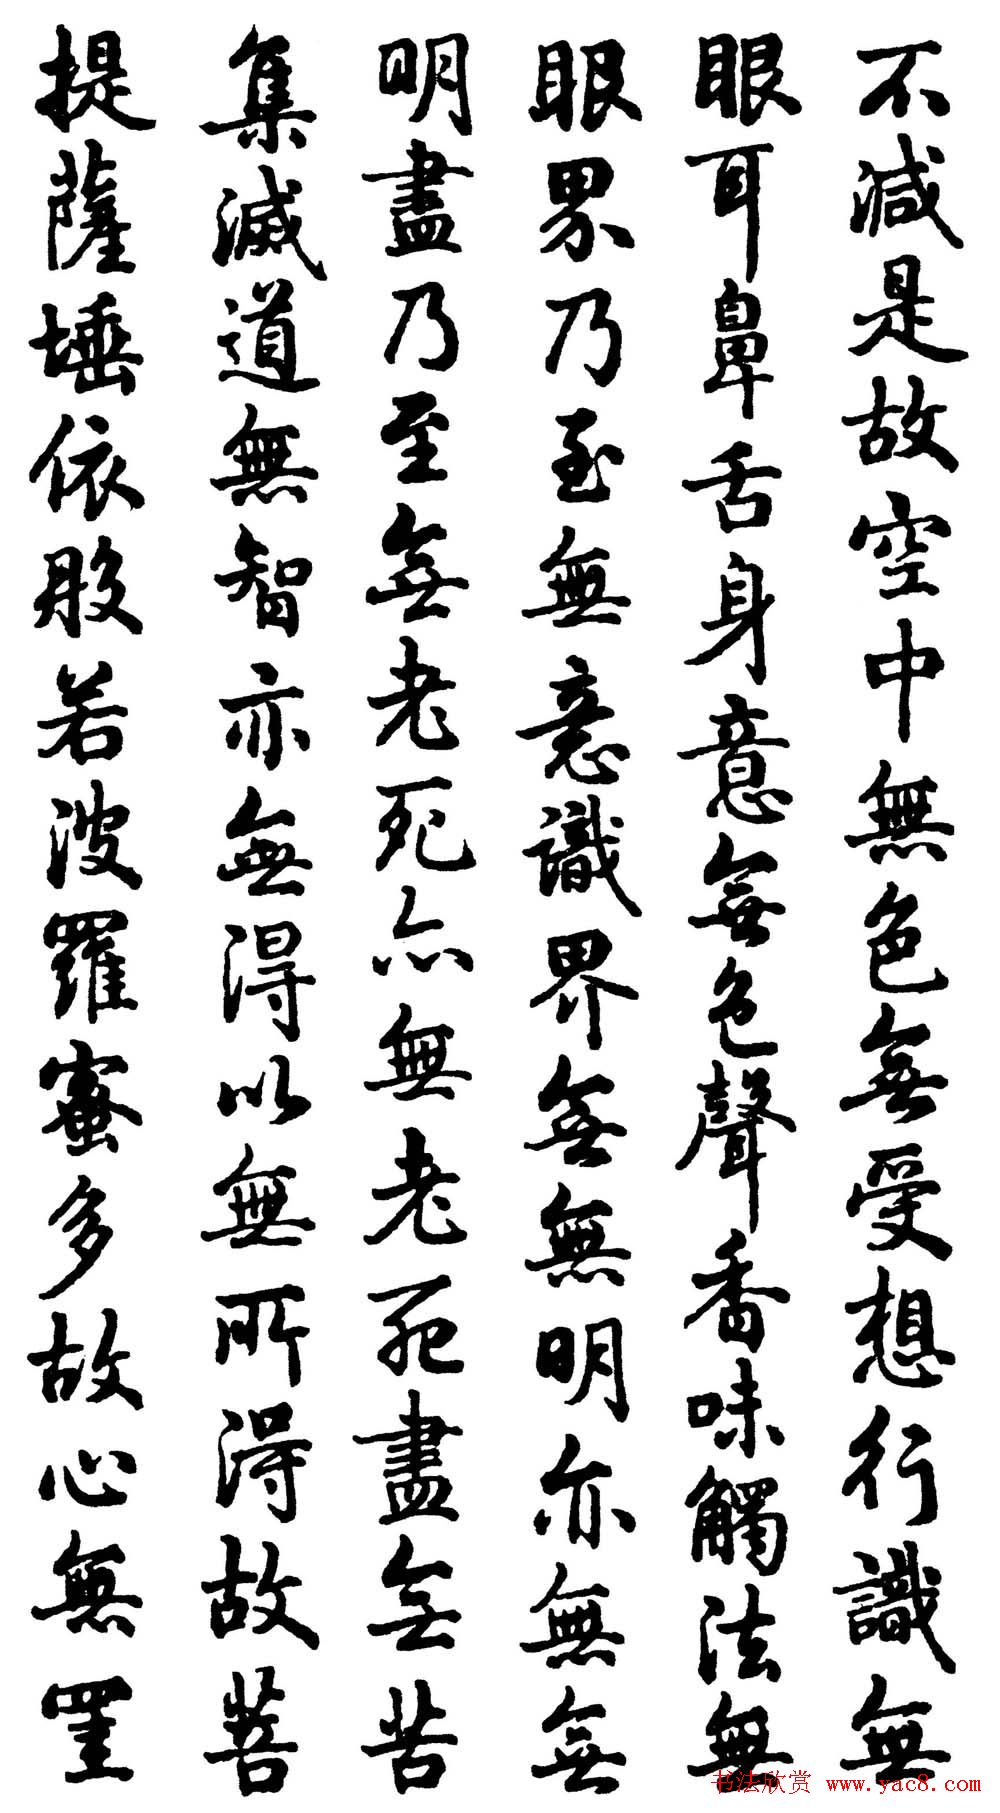 不減是故空中無色無受想行識無
眼耳鼻舌身意無色聲香味觸法無
眼界乃至無意識界無無明亦無無
明盡乃至無老死亦無老死盡無苦
集滅道無智亦無得以無所得故菩
提薩埵依般若波羅蜜多故心無罣
书法欣赏 www.yac8.com